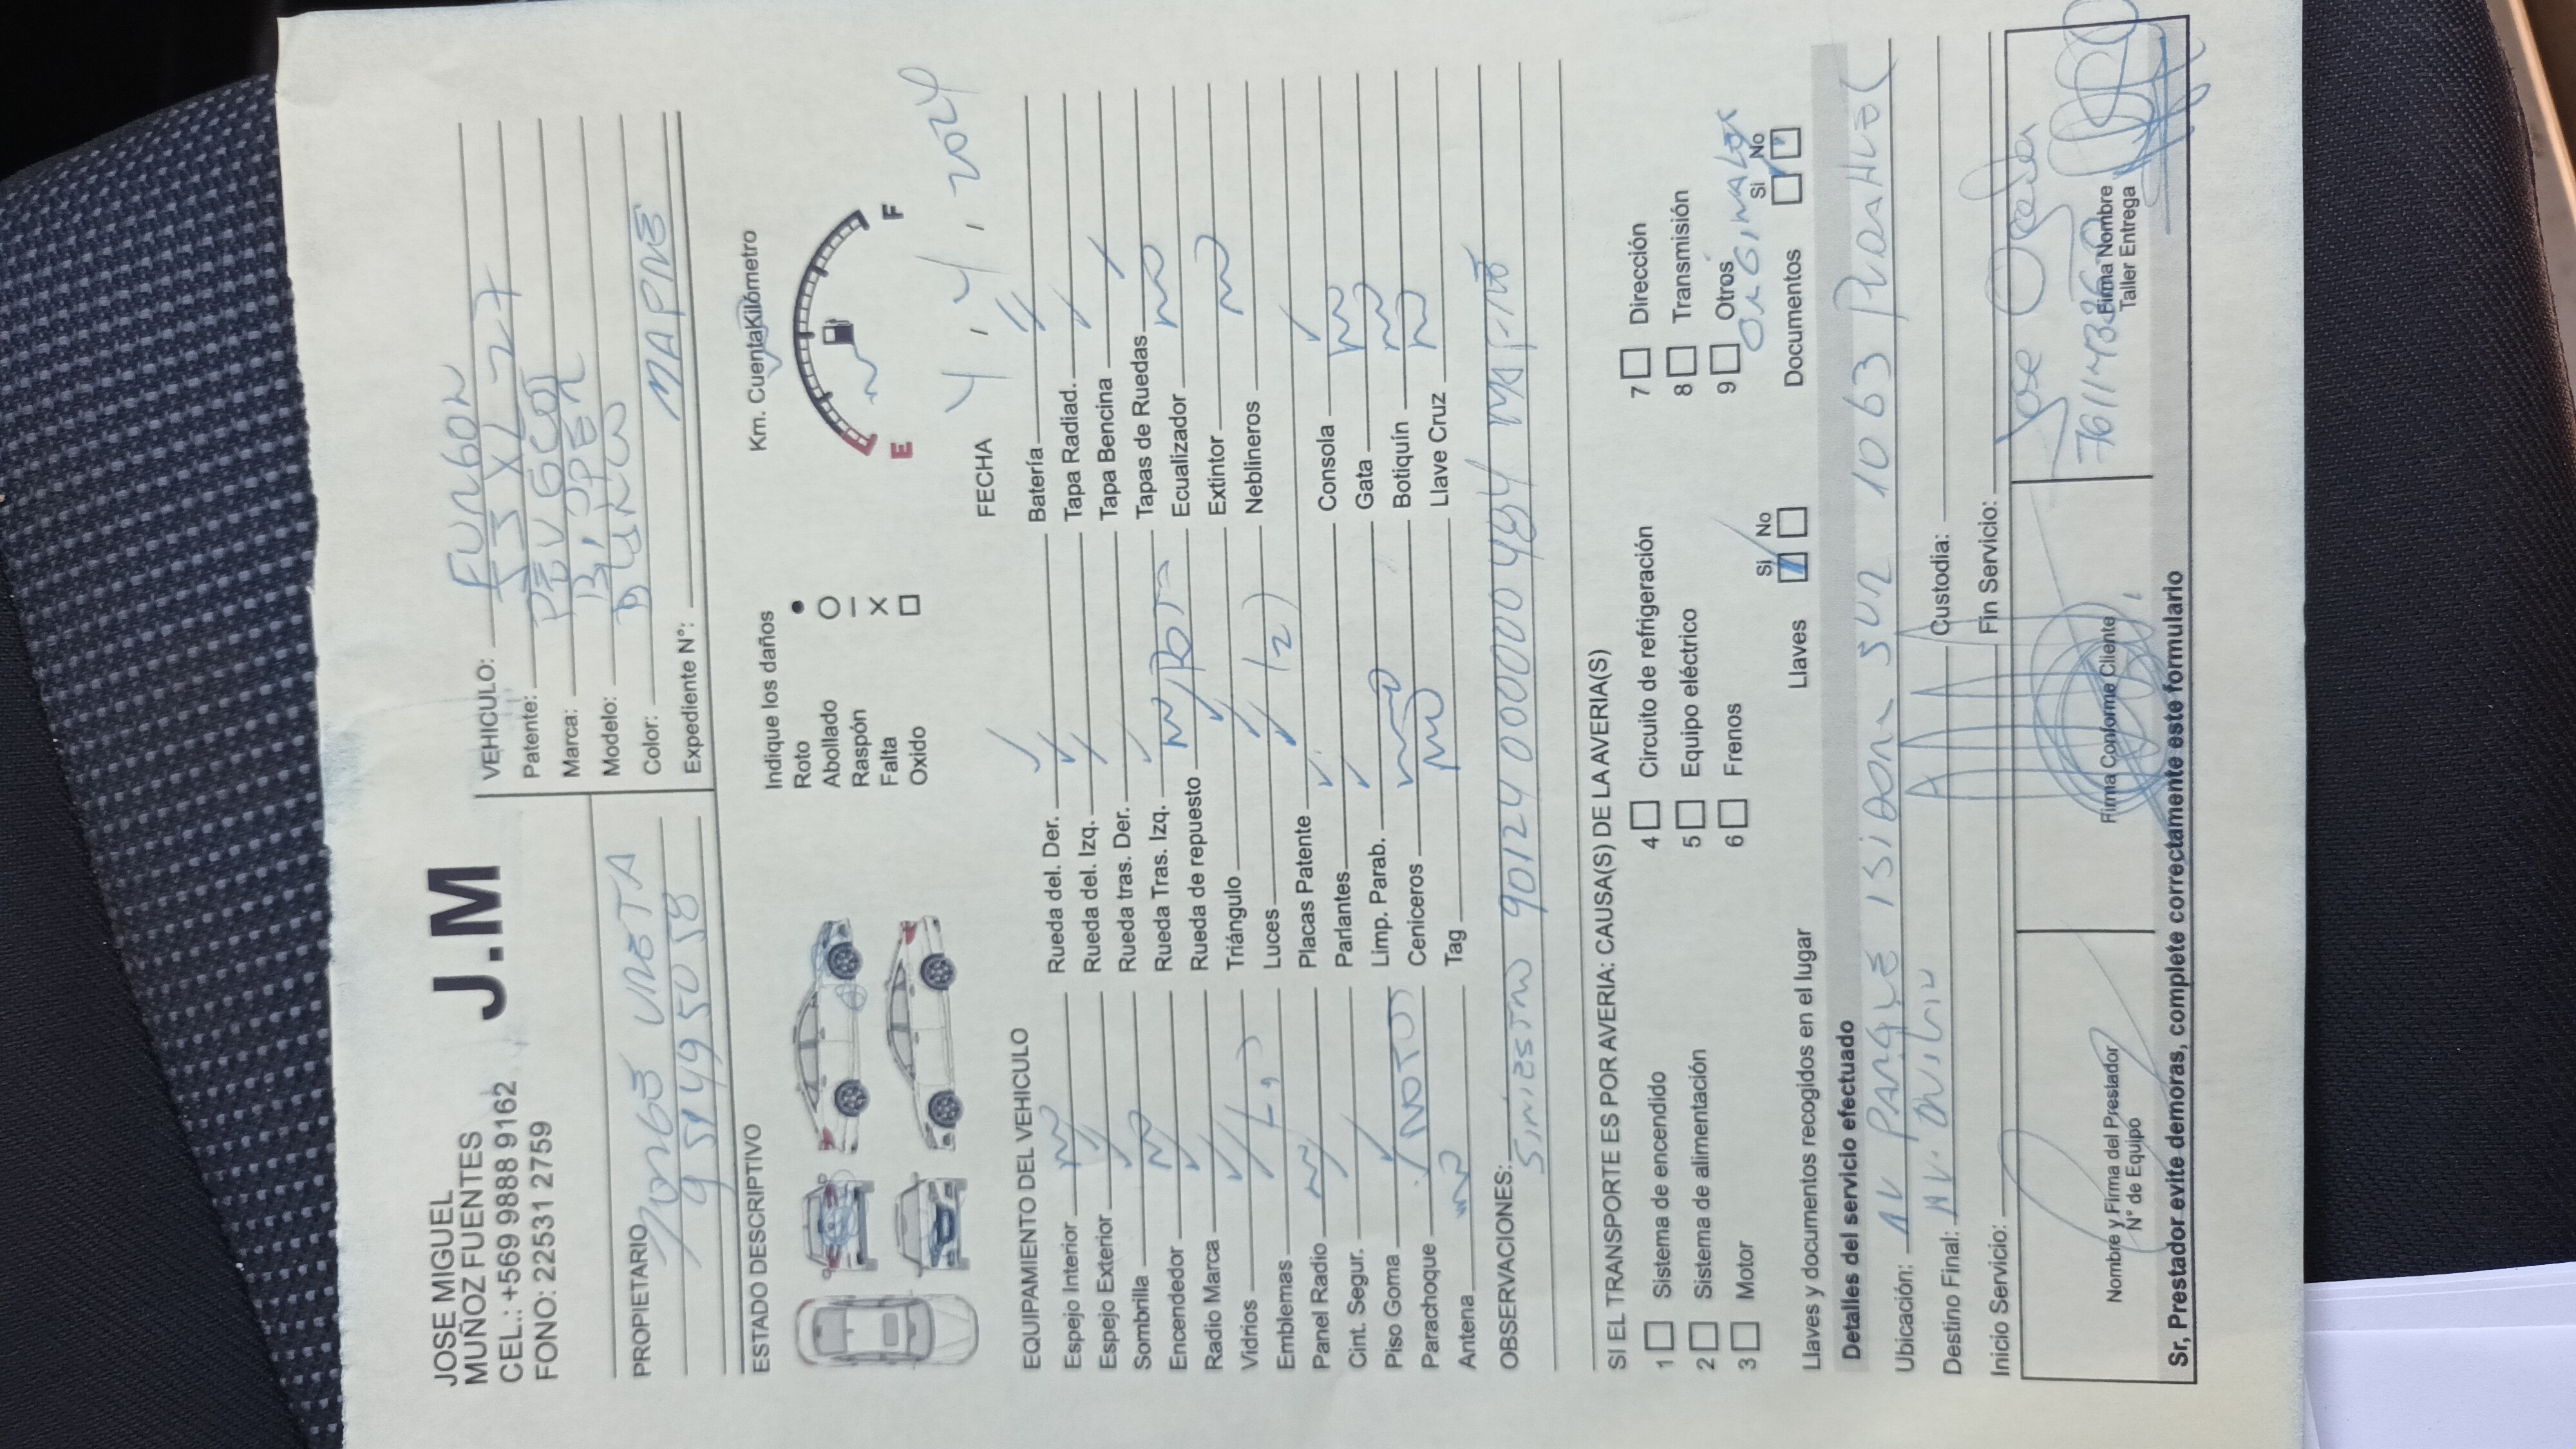 JOSE MIGUEL
MUÑOZ FUENTES
CEL.: +569 9888 9162
FONO: 22531 2759
J.M
VEHICULO: FURGON
Patente:
Marca: PEUGEOT
Modelo:
Color:
Expediente N°: MAPFRE
PROPIETARIO JORGE URETA
ESTADO DESCRIPTIVO
Indique los daños
Roto
Abollado
Raspón
Falta X
Oxido
Km. CuentaKilómetro
E F
FECHA 4, 4, 2024
EQUIPAMIENTO DEL VEHICULO
Espejo Interior NO
Espejo Exterior
Sombrilla NO
Encendedor
Radio Marca
Vidrios
Emblemas
Panel Radio
Cint. Segur.
Piso Goma
Parachoque (ROTO)
Antena NO
Rueda del. Der.
Rueda del. Izq.
Rueda tras. Der.
Rueda Tras. Izq.
Rueda de repuesto
Triángulo
Luces (2)
Placas Patente
Parlantes
Limp. Parab.
Ceniceros
Tag NO
Batería
Tapa Radiad.
Tapa Bencina
Tapas de Ruedas
Ecualizador NO
Extintor
Neblineros NO
Consola
Gata NO
Botiquín NO
Llave Cruz NO
OBSERVACIONES:
SINIESTRO
SI EL TRANSPORTE ES POR AVERIA: CAUSA(S) DE LA AVERIA(S)
1 Sistema de encendido
2 Sistema de alimentación
3 Motor
4 Circuito de refrigeración
5 Equipo eléctrico
6 Frenos
7 Dirección
8 Transmisión
9 Otros
ORIGINALES
Llaves y documentos recogidos en el lugar
Llaves Si No
Documentos Si No
Detalles del servicio efectuado
Ubicación: AV PARQUE ISIDORA SUR 1063 PUDAHUEL
Destino Final: AV.
Custodia:
Inicio Servicio:
Fin Servicio:
Jose
Nombre y Firma del Prestador
N° de Equipo
Firma Conforme Cliente
Firma Nombre
Taller Entrega
Sr, Prestador evite demoras, complete correctamente este formulario